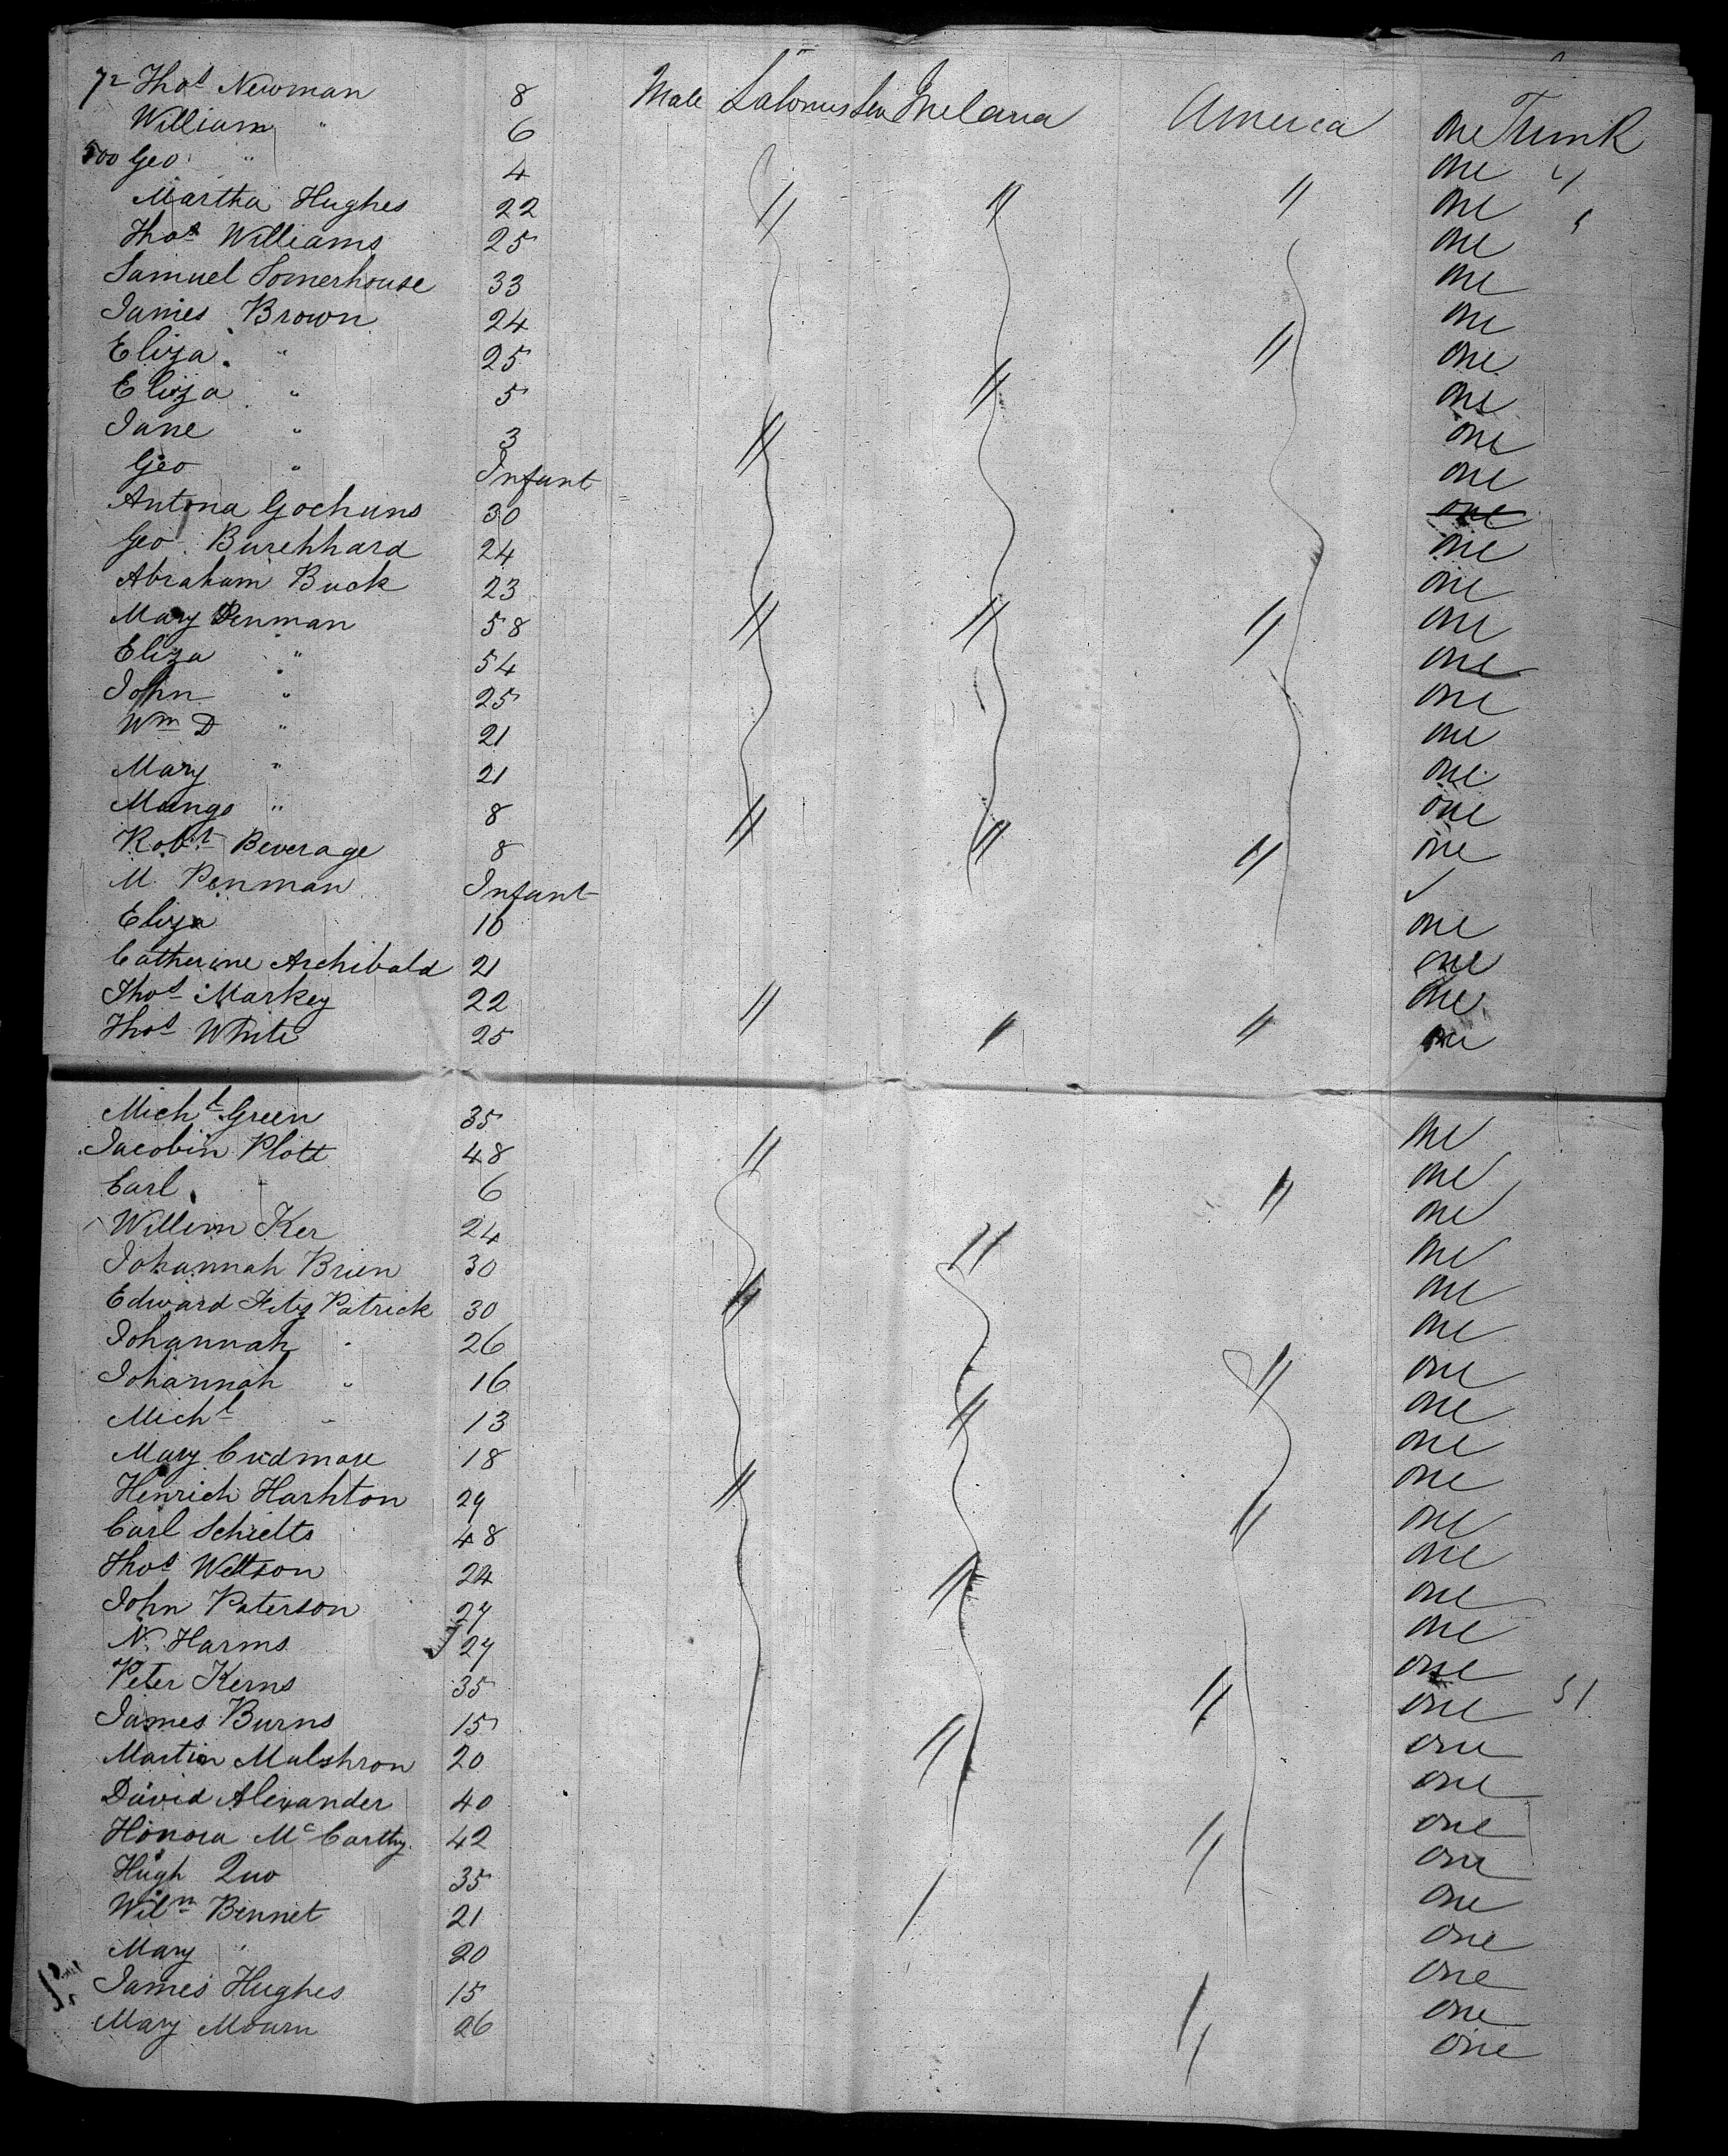 72 Thos Newman 8 Male America one Trunk
William " 6 one "
500 Geo " 4 one "
Martha Hughes 22 " " " one
Thos Williams 25 one
Samuel Somerhouse 33 one
James Brown 24 one
Eliza " 25 " one
Eliza " 5 " one
Jane " 3 " one
Geo " Infant one
Antona Gochuns 30 one
Geo Burchhard 24 one
Abraham Buck 23 one
Mary Penman 58 " " " one
Eliza " 54 one
John " 25 one
Wm D " 21 one
Mary " 21 one
Mungo " 8 " one
Robt Beverage 8 " " one
M. Penman Infant ✓
Eliza 10 one
Catherine Archibald 21 one
Thos Markey 22 " one
Thos White 25 " " one
Michl Green 35 one
Jacobin Plott 48 " one
Carl " 6 " one
William Ker 24 " one
Johannah Brien 30 one
Edward Fitz Patrick 30 " one
Johannah " 26 one
Johannah " 16 " one
Michl " 13 " one
Mary Cudmore 18 one
Henrich Harhton 29 " one
Carl Schielts 48 " one
Thos Wettson 24 " one
John Paterson 27 one
N. Harms 27 one
Peter Kerns 35 " one "
James Burns 15 one
Martin Mulshron 20 " one
David Alexander 40 one
Honora McCarthy 42 " one
Hugh Quo 35 one
Wilm Bennet 21 " one
Mary " 20 one
James Hughes 15 one
Mary Mourn 26 " one